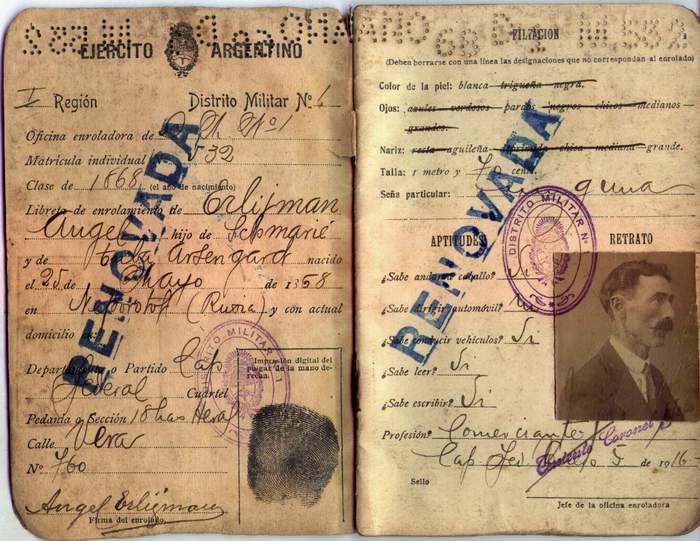 EJERCITO ARGENTINO
I Región Distrito Militar Nº 1
Oficina enroladora de D. M. Nº 1
Matrícula individual 532
Clase de 1868 (el año de nacimiento)
Libreta de enrolamiento de Erlijman
Angel hijo de
y de nacido
el 25 de Mayo de 1868
en (Rusia) y con actual
domicilio en:
Departamento o Partido Cap
Federal Cuartel
Pedanía o Sección 18
Calle Vera
Nº 760
Impresión digital del pulgar de la mano derecha.
Angel Erlijman
Firma del enrolado.
RENOVADA
DISTRITO MILITAR N. 1
FILIACION
(Deben borrarse con una línea las designaciones que no correspondan al enrolado)
Color de la piel: blanca trigueña negra.
Ojos: azules verdosos pardos negros chicos medianos
grandes.
Nariz: recta aguileña chica mediana grande.
Talla: 1 metro y 70 cent.
Seña particular:
DISTRITO MILITAR N. 1
APTITUDES RETRATO
¿Sabe andar a caballo? Si
¿Sabe dirigir automóvil?
¿Sabe conducir vehículos? Si
¿Sabe leer? Si
¿Sabe escribir? Si
Profesión? Comerciante
Cap. Fed. 5 de 1916
Sello
Jefe de la oficina enroladora
RENOVADA